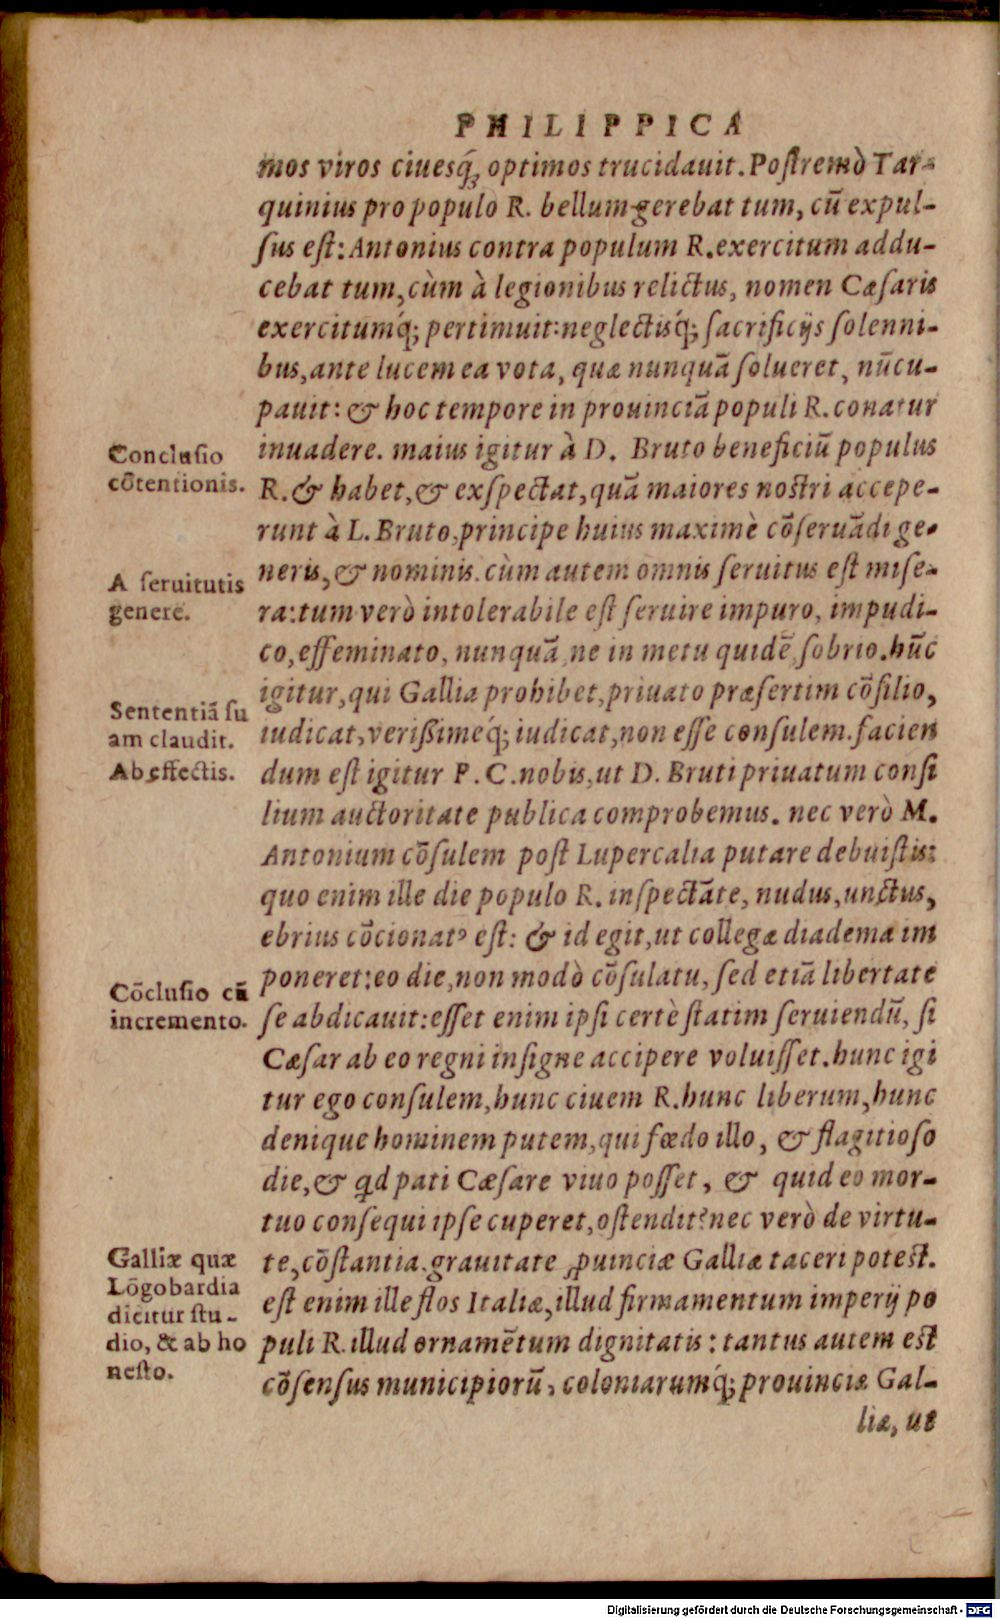 PHILIPPICA
mos viros ciuesq́ꝫ optimos trucidauit. Postremò Tar-
quinius pro populo R. bellum gerebat tum, cū expul-
sus est: Antonius contra populum R. exercitum addu-
cebat tum, cùm à legionibus relictus, nomen Cæsaris
exercitumq́; pertimuit: neglectisq́; sacrificijs solenni-
bus, ante lucem ea vota, quæ nunquā solueret, nūcu-
pauit: & hoc tempore in prouinciā populi R. conatur
inuadere. maius igitur à D. Bruto beneficiū populus
R. & habet, & exspectat, quā maiores nostri accepe-
runt à L. Bruto, principe huius maximè cōseruādi ge-
neris, & nominis. cùm autem omnis seruitus est mise-
ra: tum verò intolerabile est seruire impuro, impudi-
co, effeminato, nunquā, ne in metu quidē, sobrio. hūc
igitur, qui Gallia prohibet, priuato præsertim cōsilio,
iudicat, verißimeq́; iudicat, non esse consulem. facien
dum est igitur P. C. nobis, ut D. Bruti priuatum consi
lium auctoritate publica comprobemus. nec verò M.
Antonium cōsulem post Lupercalia putare debuistis:
quo enim ille die populo R. inspectāte, nudus, unctus,
ebrius cōcionatꝰ est: & id egit, ut collegæ diadema im
poneret: eo die, non modò cōsulatu, sed etiā libertate
se abdicauit: esset enim ipsi certè statim seruiendū, si
Cæsar ab eo regni insigne accipere voluisset. hunc igi
tur ego consulem, hunc ciuem R. hunc liberum, hunc
denique hominem putem, qui fœdo illo, & flagitioso
die, & qd pati Cæsare viuo posset, & quid eo mor-
tuo consequi ipse cuperet, ostendit? nec verò de virtu-
te, cōstantia, grauitate ꝓuinciæ Galliæ taceri potest.
est enim ille flos Italiæ, illud firmamentum imperij po
puli R. illud ornamētum dignitatis: tantus autem est
cōsensus municipiorū, coloniarumq́; prouinciæ Gal-
liæ, ut
Conclusio
cōtentionis.
A seruitutis
genere.
Sententiā su
am claudit.
Ab effectis.
Cōclusio cū
incremento.
Galliæ quæ
Lōgobardia
dicitur stu-
dio, & ab ho
nesto.
Digitalisierung gefördert durch die Deutsche Forschungsgemeinschaft - DFG